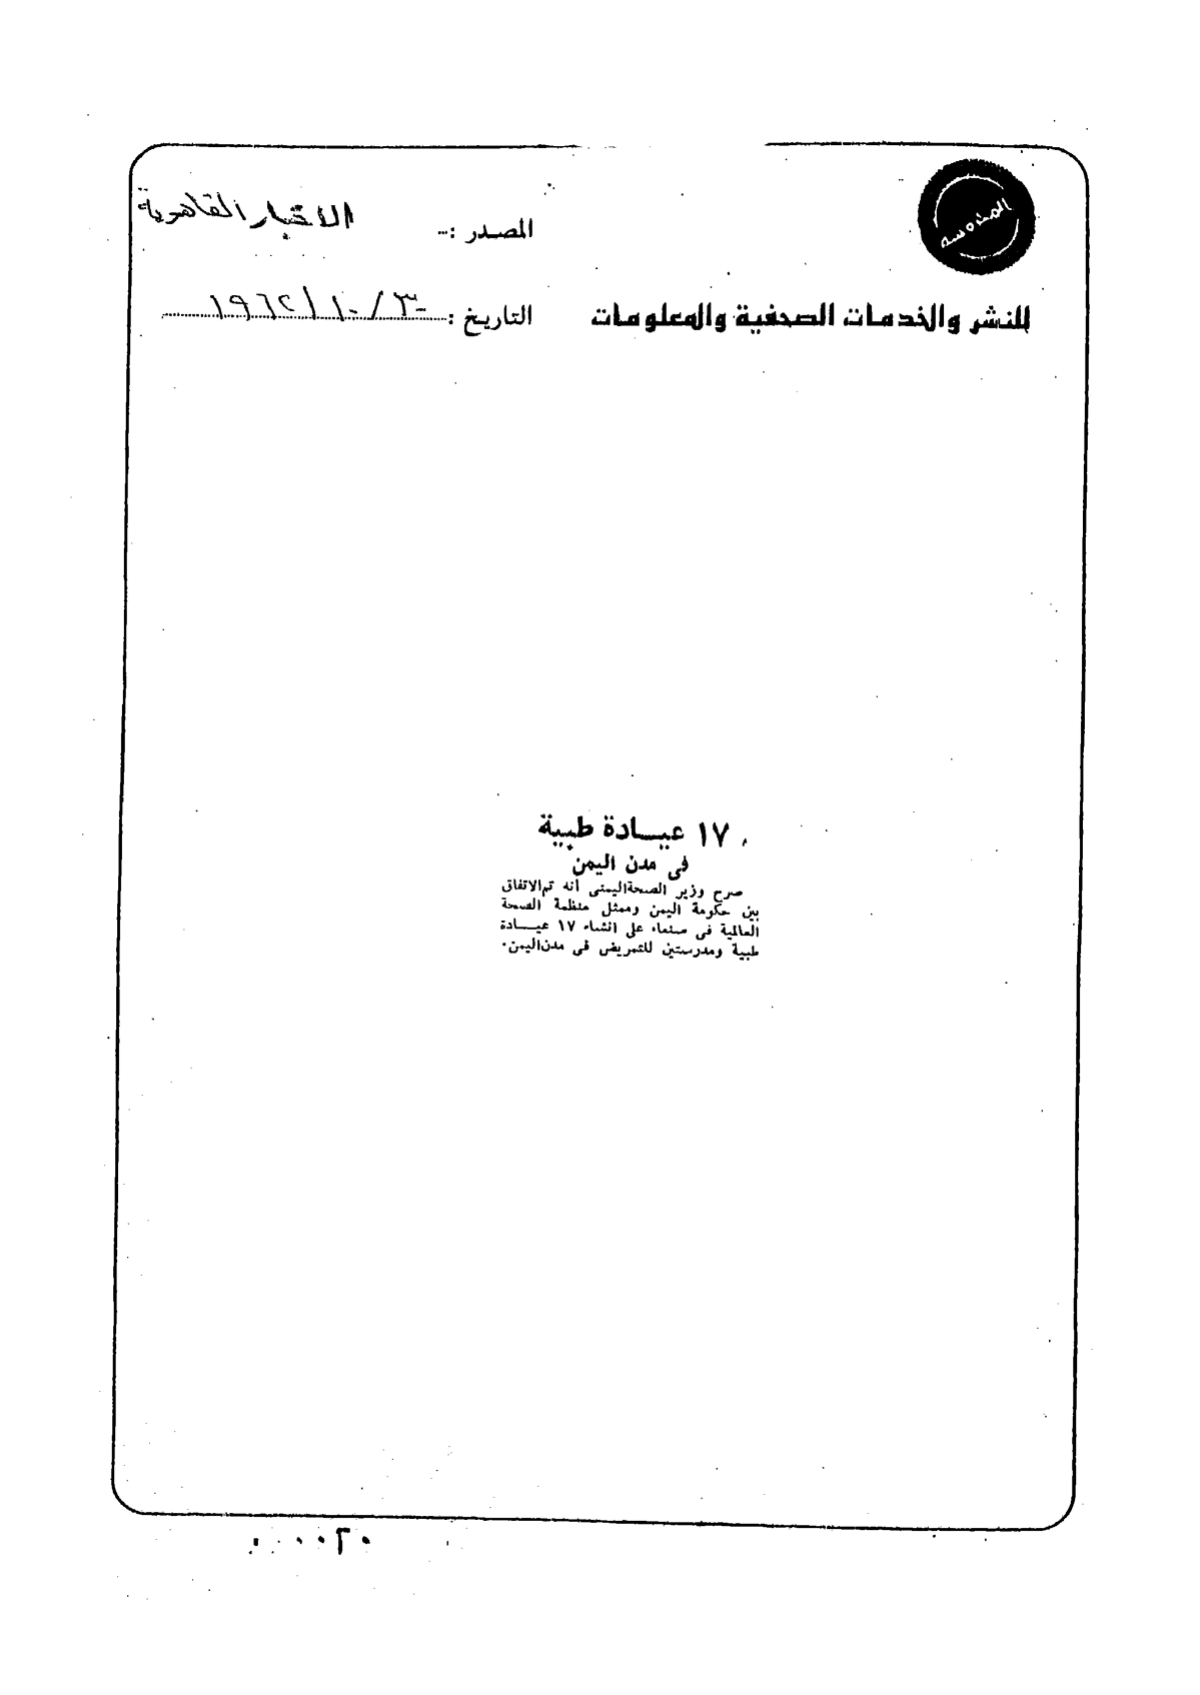 المحروسه
المصدر :-- الأخبار القاهرية
للنشر والخدمات الصحفية والمعلومات
التاريخ : ٣٠/ ١٠/ ١٩٦٢
١٧ عيادة طبية
فى مدن اليمن
صرح وزير الصحة اليمنى أنه تم الاتفاق
بين حكومة اليمن وممثل منظمة الصحة
العالمية فى صنعاء على انشاء ١٧ عيادة
طبية ومدرستين للتمريض فى مدن اليمن.